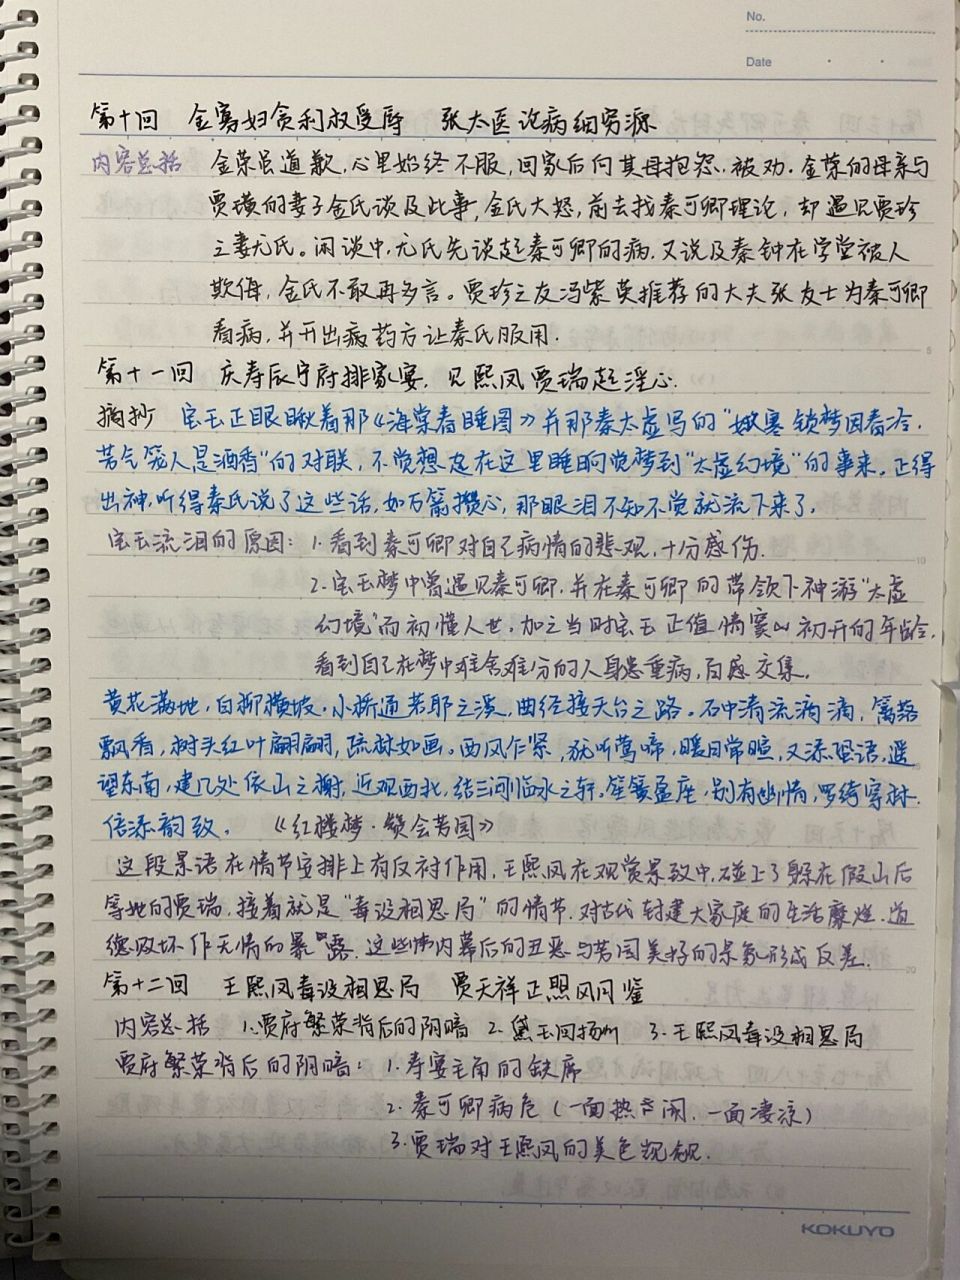 No.
Date
第十回 金寡妇贪利权受辱 张太医论病细穷源
内容总括 金荣虽道歉,心里始终不服,回家后向其母抱怨.被劝.金荣的母亲与
贾璜的妻子金氏谈及此事,金氏大怒,前去找秦可卿理论,却遇见贾珍
之妻尤氏。闲谈中,尤氏先谈起秦可卿的病,又说及秦钟在学堂被人
欺侮,金氏不敢再多言。贾珍之友冯紫英推荐的大夫张友士为秦可卿
看病,并开出病药方让秦氏服用.
第十一回 庆寿辰宁府排家宴. 见熙凤贾瑞起淫心.
摘抄 宝玉正眼瞅着那《海棠春睡图》并那秦太虚写的“嫩寒锁梦因春冷,
芳气笼人是酒香”的对联,不觉想起在这里睡晌觉梦到“太虚幻境”的事来.正得
出神,听得秦氏说了这些话,如万箭攒心,那眼泪不知不觉就流下来了.
宝玉流泪的原因:1.看到秦可卿对自己病情的悲观,十分感伤.
2.宝玉梦中曾遇见秦可卿,并在秦可卿的带领下神游“太虚
幻境”而初懂人世.加之当时宝玉正值情窦初开的年龄.
看到自己在梦中难舍难分的人身患重病,百感交集.
黄花满地,白柳横坡.小桥通若耶之溪,曲径接天台之路。石中清流滴滴,篱落
飘香,树头红叶翩翩,疏林如画。西风乍紧,犹听莺啼,暖日常暄,又添蛩语,遥
望东南,建几处依山之榭,近观西北,结三间临水之轩.笙簧盈座,别有幽情,罗绮穿林.
倍添韵致。 《红楼梦·赞会芳园》
这段景语在情节安排上有反衬作用,王熙凤在观赏景致中,碰上了躲在假山后
等她的贾瑞,接着就是“毒设相思局”的情节.对古代封建大家庭的生活糜烂.道
德败坏作无情的暴露.这些情内幕后的丑恶与芳园美好的景象形成反差.
第十二回 王熙凤毒设相思局 贾天祥正照风月鉴
内容总括 1.贾府繁荣背后的阴暗 2.黛玉回扬州 3.王熙凤毒设相思局
贾府繁荣背后的阴暗:1.寿宴主角的缺席
2.秦可卿病危(一面热闹.一面凄凉)
3.贾瑞对王熙凤的美色觊觎.
KOKUYO